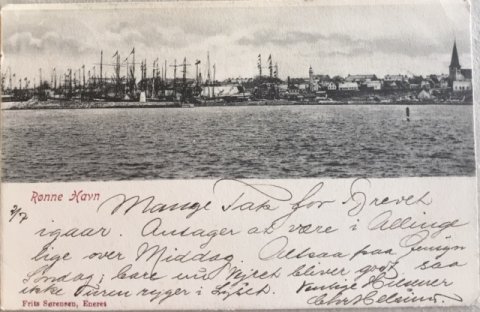 Rønne Havn
2/7 Mange Tak for Brevet
igaar. Antager at være i Allinge
lige over Middag. Altsaa paa Gensyn
Søndag; bare nu Vejret bliver godt saa
ikke Turen ryger i Lyset. Venlige Hilsener
Frits Sørensen, Eneret